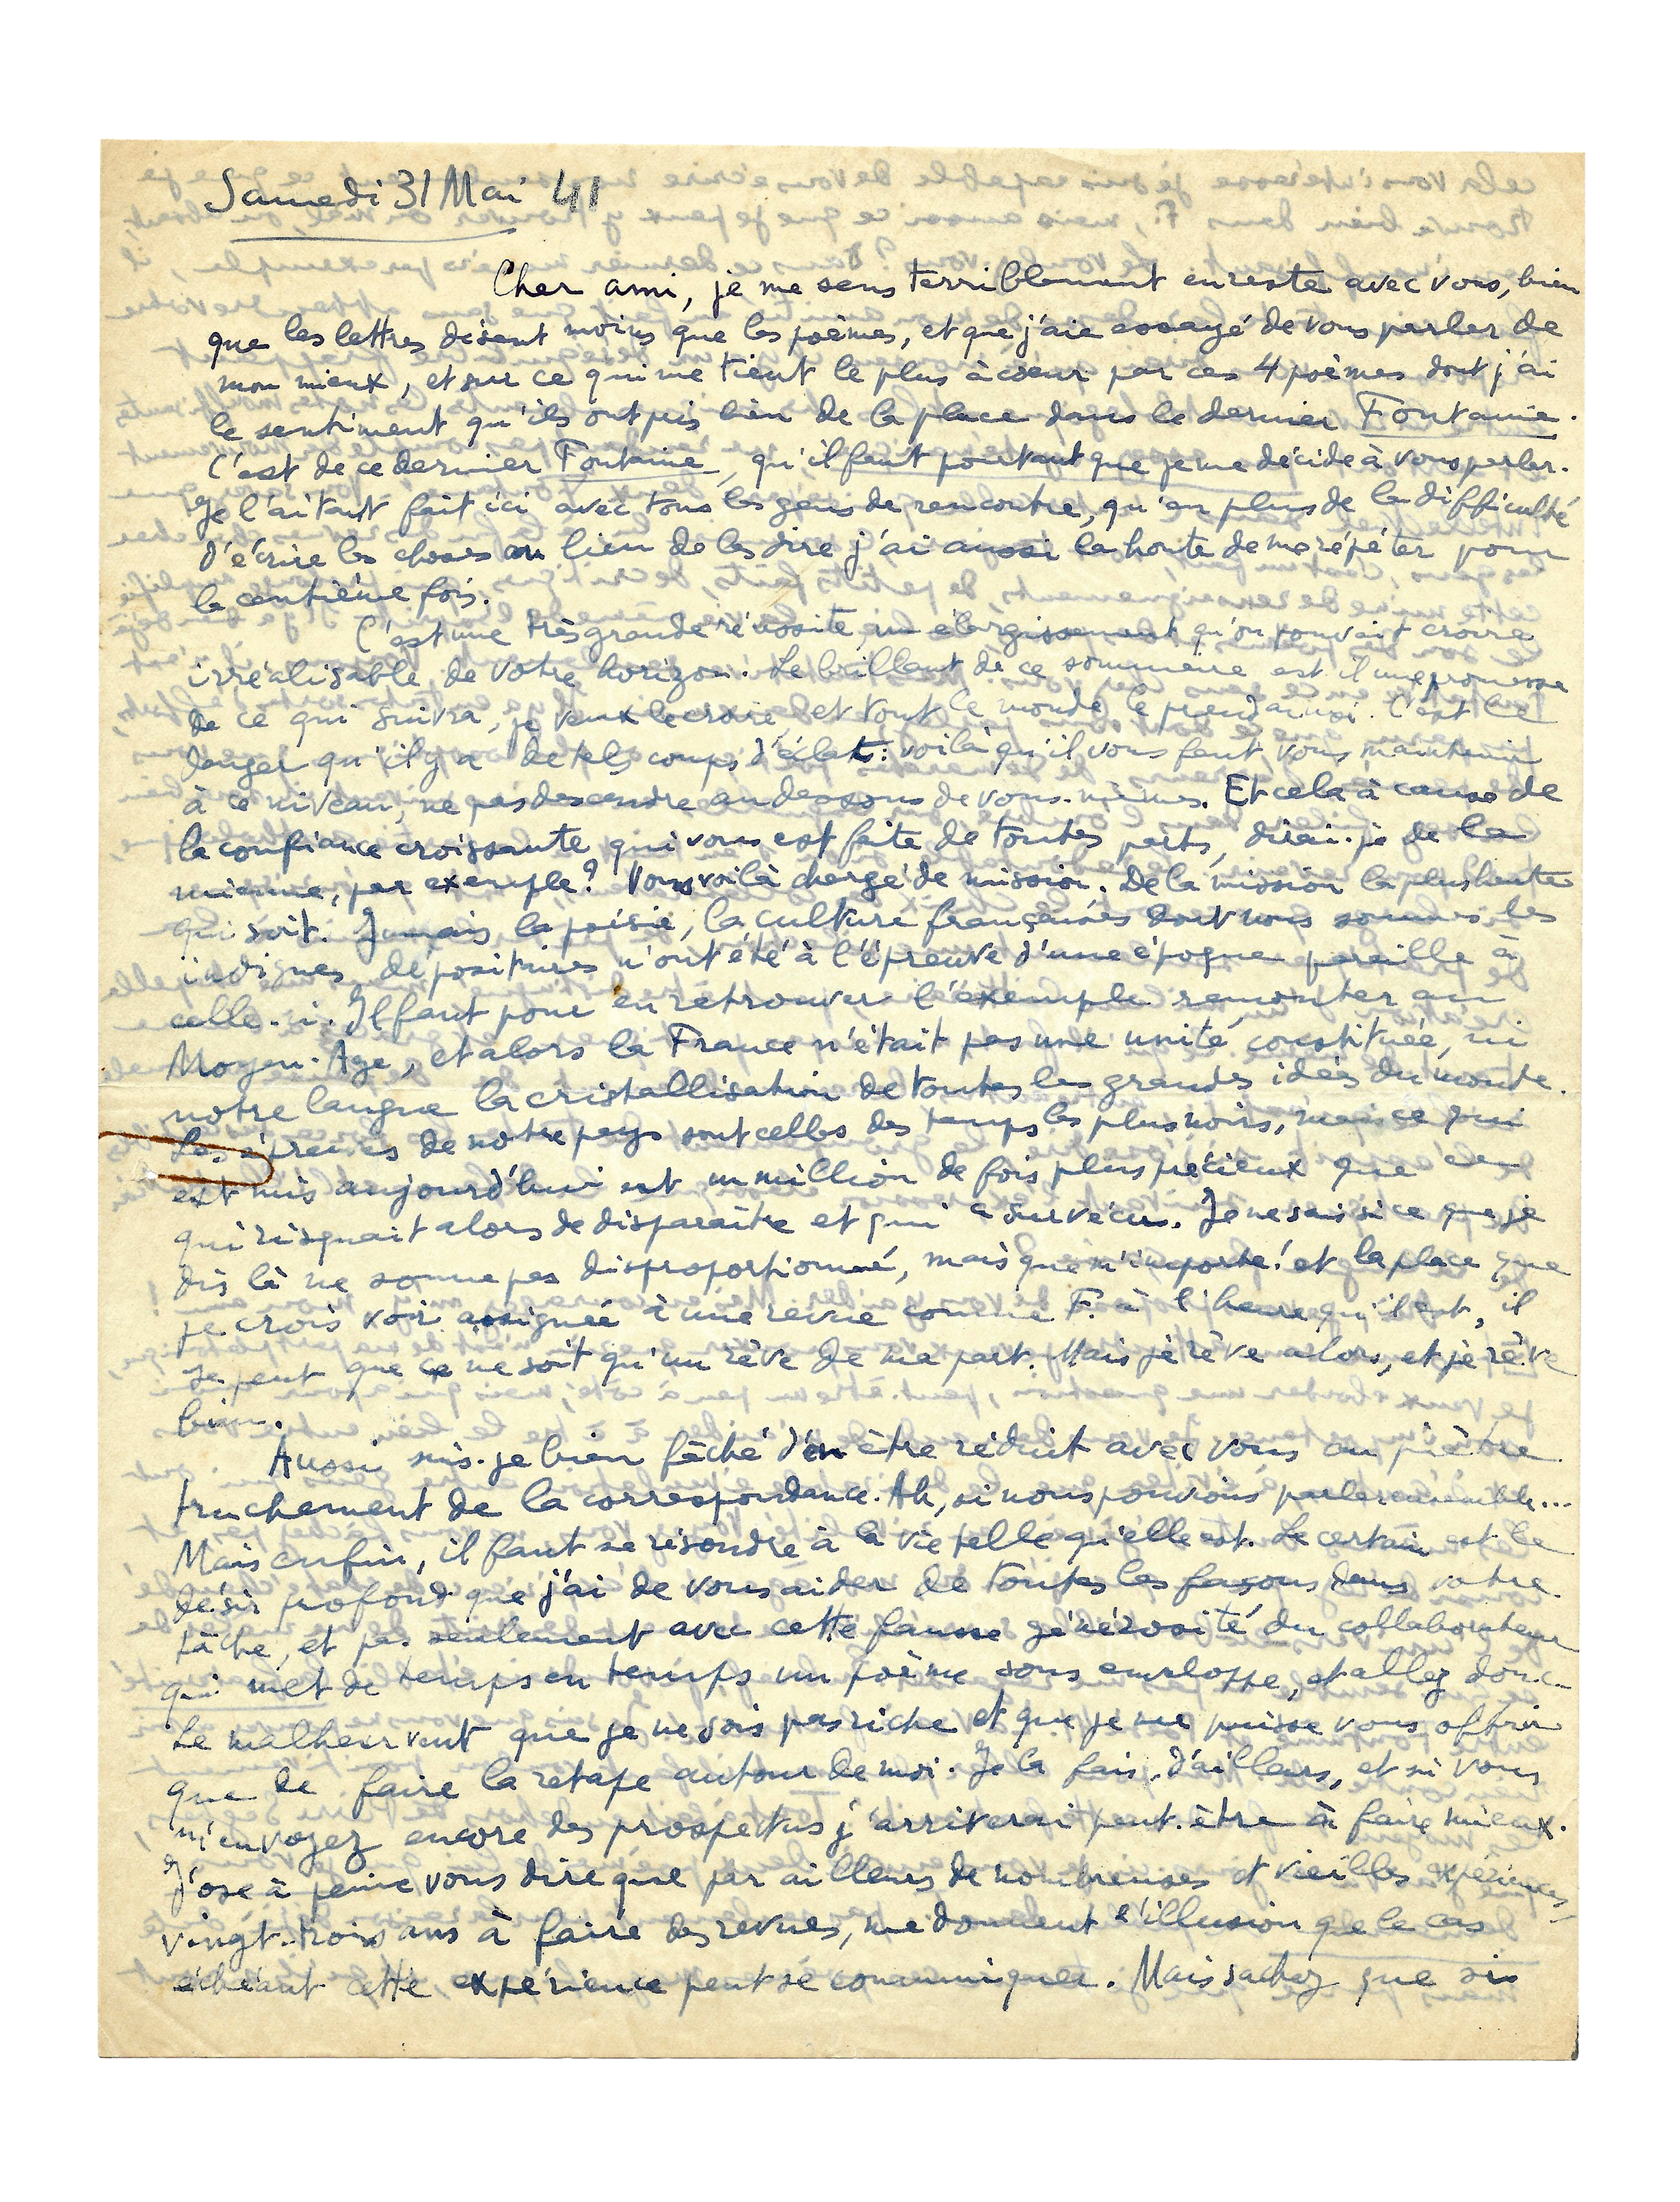 Samedi 31 Mai 41
Cher ami, je me sens terriblement en reste avec vous, bien
que les lettres disent moins que les poèmes, et que j'aie essayé de vous parler de
mon mieux, et sur ce qui me tient le plus à coeur par ces 4 poèmes dont j'ai
le sentiment qu'ils ont pris bien de la place dans le dernier Fontaine.
C'est de ce dernier Fontaine, qu'il faut pourtant que je me décide à vous parler.
Je l'ai tant fait ici avec tous les gens de rencontre, qu'en plus de la difficulté
d'écrire les choses au lieu de les dire j'ai aussi la honte de me répéter pour
la centième fois.
C'est une très grande réussite, un élargissement qu'on pouvait croire
irréalisable de votre horizon. Le brillant de ce sommaire est-il une promesse
de ce qui suivra, je veux le croire, et tout le monde le prend ainsi. C'est le
danger qu'il y a de tels coups d'éclat: voilà qu'il vous faut vous maintenir
à ce niveau, ne pas descendre au dessous de vous-mêmes. Et cela à cause de
la confiance croissante qui vous est faite de toutes parts, dirai-je de la
mienne, par exemple? Vous voilà chargé de mission. De la mission la plus haute
qui soit. Jamais la poésie, la culture françaises dont nous sommes les
indignes dépositaires n'ont été à l'épreuve d'une époque pareille à
celle-ci. Il faut pour en retrouver l'exemple remonter au
Moyen-Age, et alors la France n'était pas une unité constituée, ni
notre langue la cristallisation de toutes les grandes idées du monde.
Les épreuves de notre pays sont celles des temps les plus noirs, mais ce qui
est mis aujourd'hui est un million de fois plus précieux que ce
qui risquait alors de disparaître et qui a survécu. Je ne sais si ce que je
dis là ne sonne pas disproportionné, mais que m'importe! et la place que
je crois voir assignée à une revue comme F. à l'heure qu'il est, il
se peut que ce ne soit qu'un rêve de ma part. Mais je rêve alors, et je rêve
bien.
Aussi suis-je bien fâché d'en être réduit avec vous au piètre
truchement de la correspondance. Ah, si nous pouvions parler ensemble...
Mais enfin, il faut se résoudre à la vie telle qu'elle est. Le certain est le
désir profond que j'ai de vous aider de toutes les façons dans votre
tâche, et pas seulement avec cette fausse générosité du collaborateur
qui met de temps en temps un poème sous enveloppe, et allez donc.
Le malheur veut que je ne sois pas riche et que je ne puisse vous offrir
que de faire la retape autour de moi. Je la fais, d'ailleurs, et si vous
m'envoyez encore des prospectus j'arriverai peut-être à faire mieux.
J'ose à peine vous dire que par ailleurs de nombreuses et vieilles expériences,
vingt-trois ans à faire des revues, me donnent l'illusion que le cas
échéant cette expérience peut se communiquer. Mais sachez que si